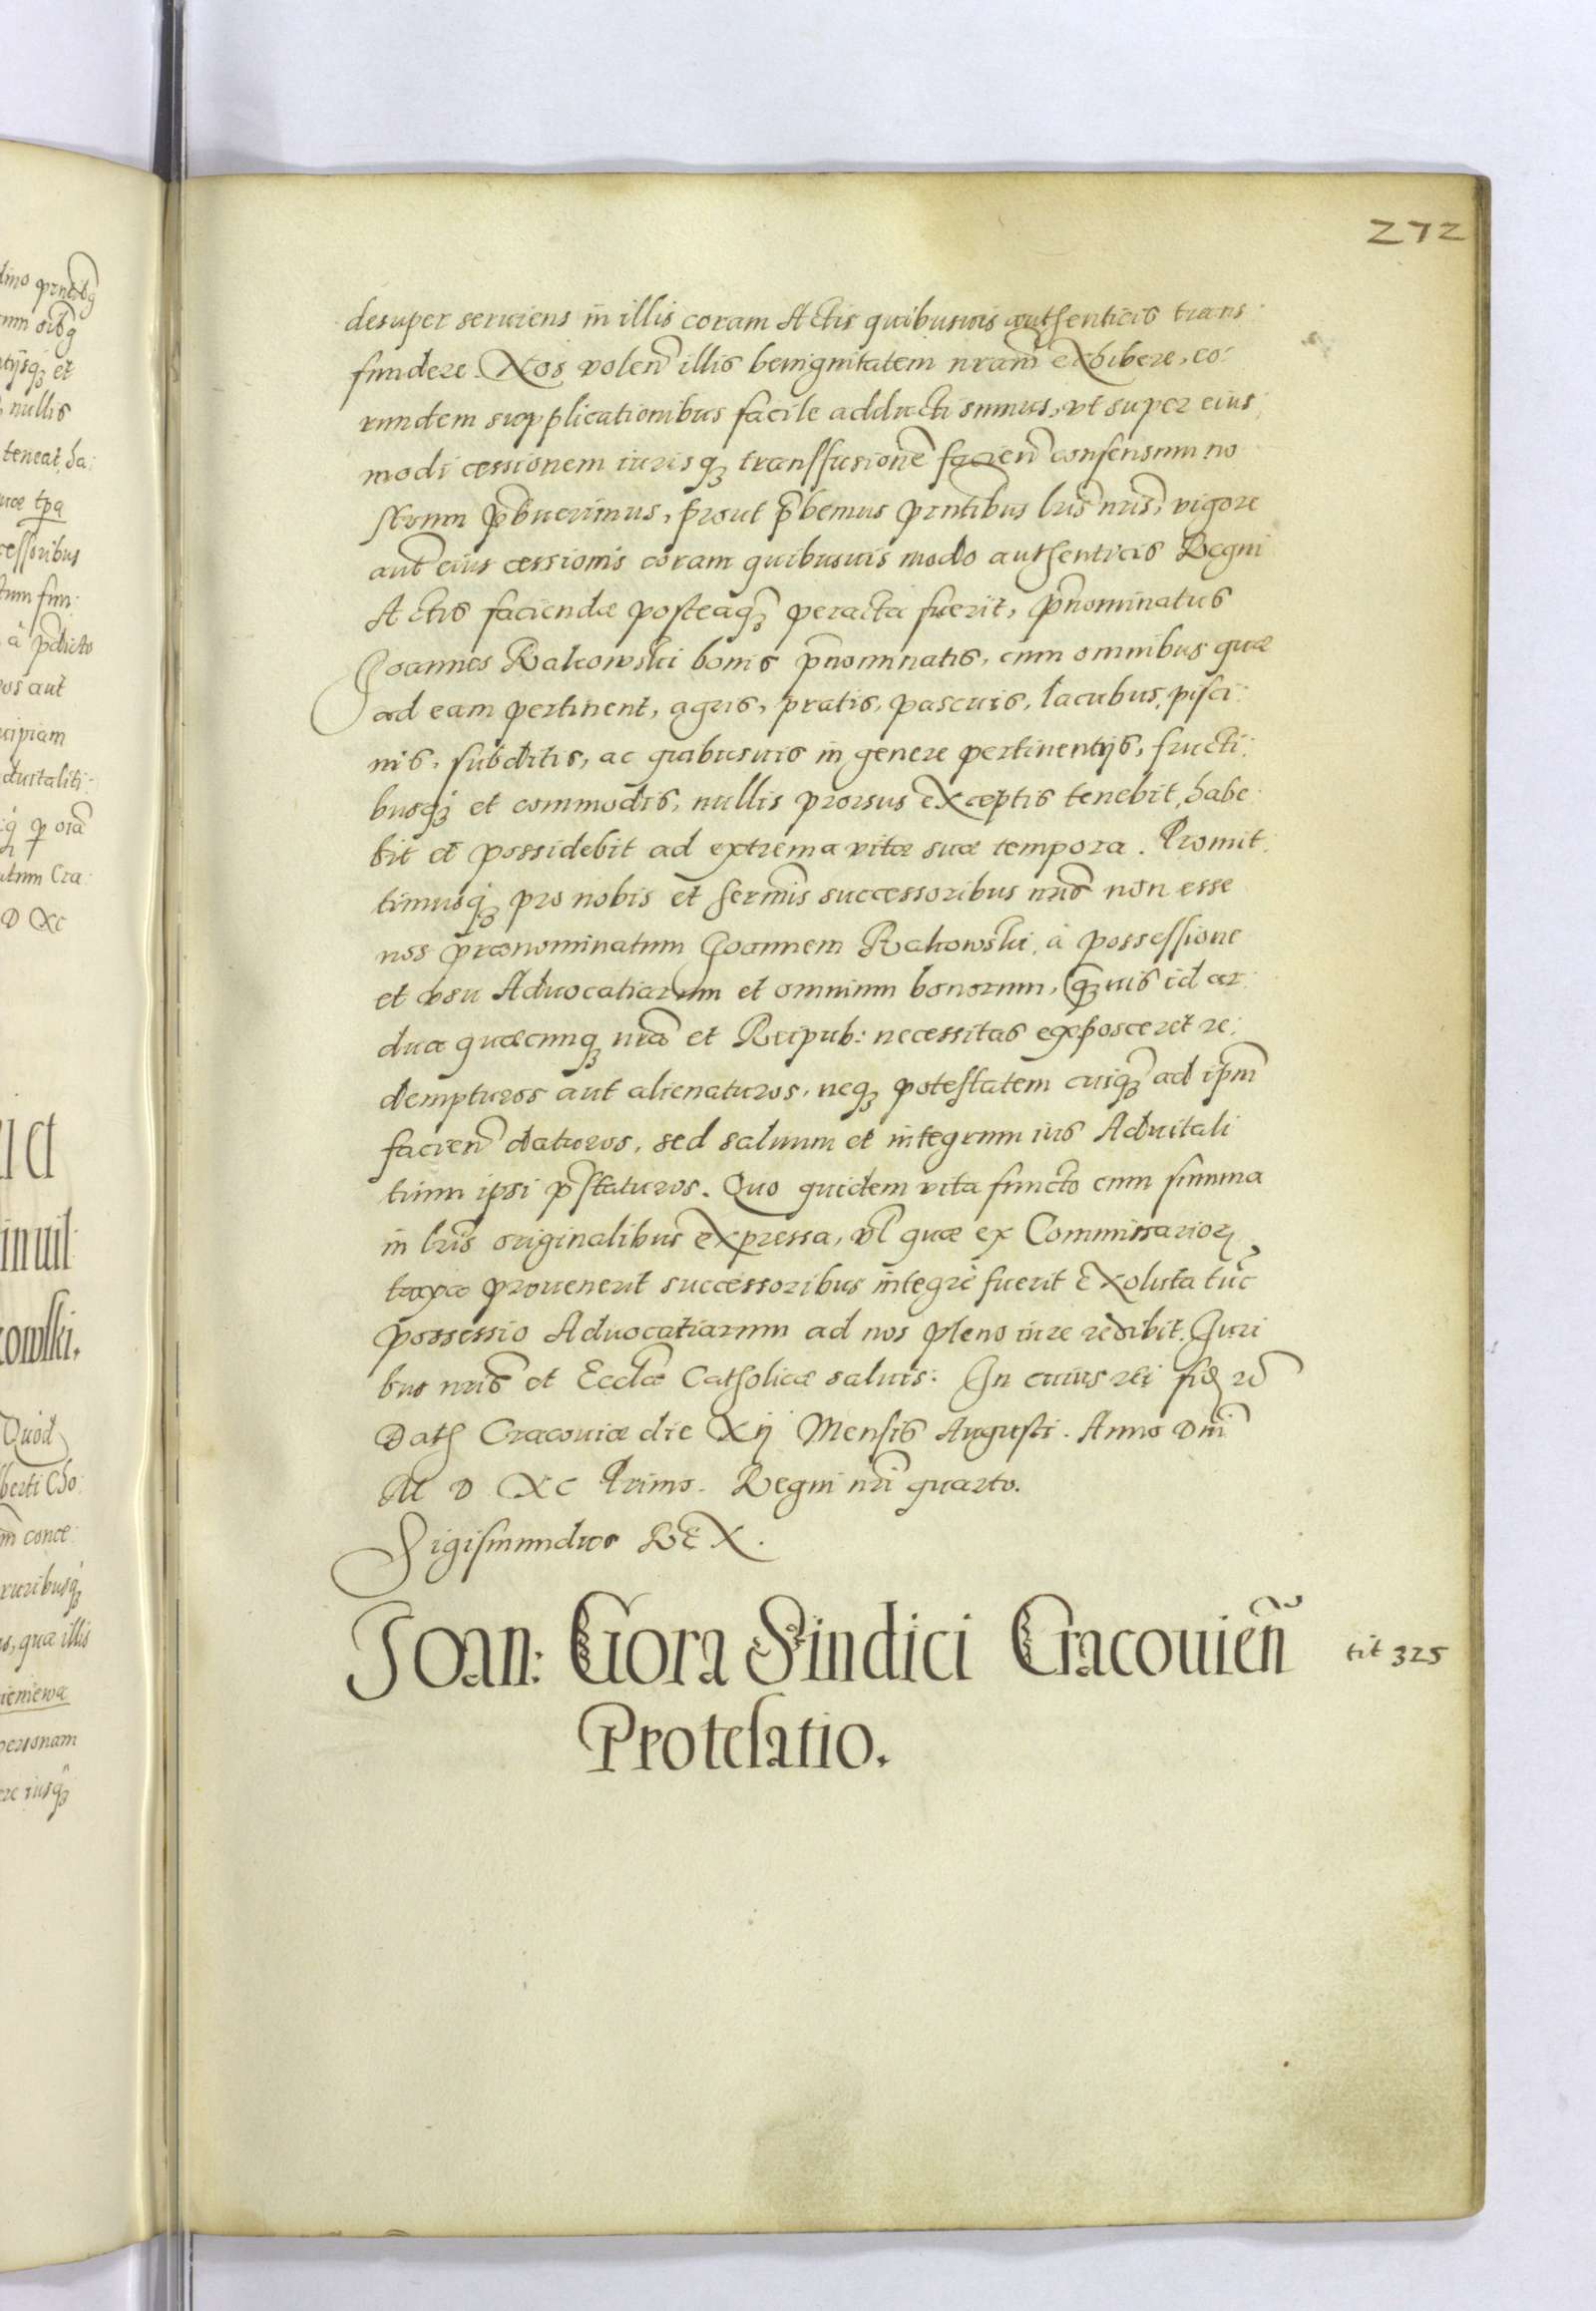 272
desuper seruiens in illis coram Actis quibusuis authenticis trans:
fundere. Nos volen̄ illis benignitatem nram̄ exhibere, eo:
rundem supplicationibus facile adducti sumus, vt super eius:
modi cessionem iurisq₃ transfusione᷉ facien̄ consensum no
strum p̄buerimus, prout p̄bemus pn̄tibus lris̄ nris̄, vigore
aut᷉ eius cessionis coram quibusuis modo authenticis Regni
Actis faciendæ posteaq₃̄ peracta fuerit, p̄nominatus
Joannes Rakowski bonis p̄nominatis, cum omnibus quæ
ad eam pertinent, agris, pratis, pascuis, lacubus, pisci:
nis, subditis, ac quibusuis in genere pertinentijs, fructi:
busq₃ et commodis, nullis prorsus exceptis tenebit, habe:
bit et possidebit ad extrema vitæ suæ tempora. Promit:
timusq₃ pro nobis et sermis̄ successoribus nris̄ non esse
nos prænominatum Joannem Rakowski, à possessione
et vsu Aduocatiarum et omnium bonorum, q₃̄uis id ar:
dua quæcunq₃ nrā et Reipub: necessitas exposceret re:
dempturos aut alienaturos, neq₃ potestatem cuiq₃̄ ad ipm̄
facien̄ daturos, sed saluum et integrum ius Aduitali
tium ipsi p̄staturos. Quo quidem vita functo cum summa
in lris̄ originalibus expressa, vl̄ quæ ex Commissarior₂
taxa prouenerit successoribus integrè fuerit exoluta tūc
possessio Aduocatiarum ad nos pleno iure redibit. Juri
bus nris̄ et Eccl̄æ Catholicæ saluis: In cuius rei fid re᷉
Dat Cracouiæ die Xij Mensis Augusti. Anno Dn̄i
M D XC Primo. Regni nri̅ quarto.
Sigismundus REX.
Joan: Gora Sindici Cracouien̄
Protelatio.
tit 325